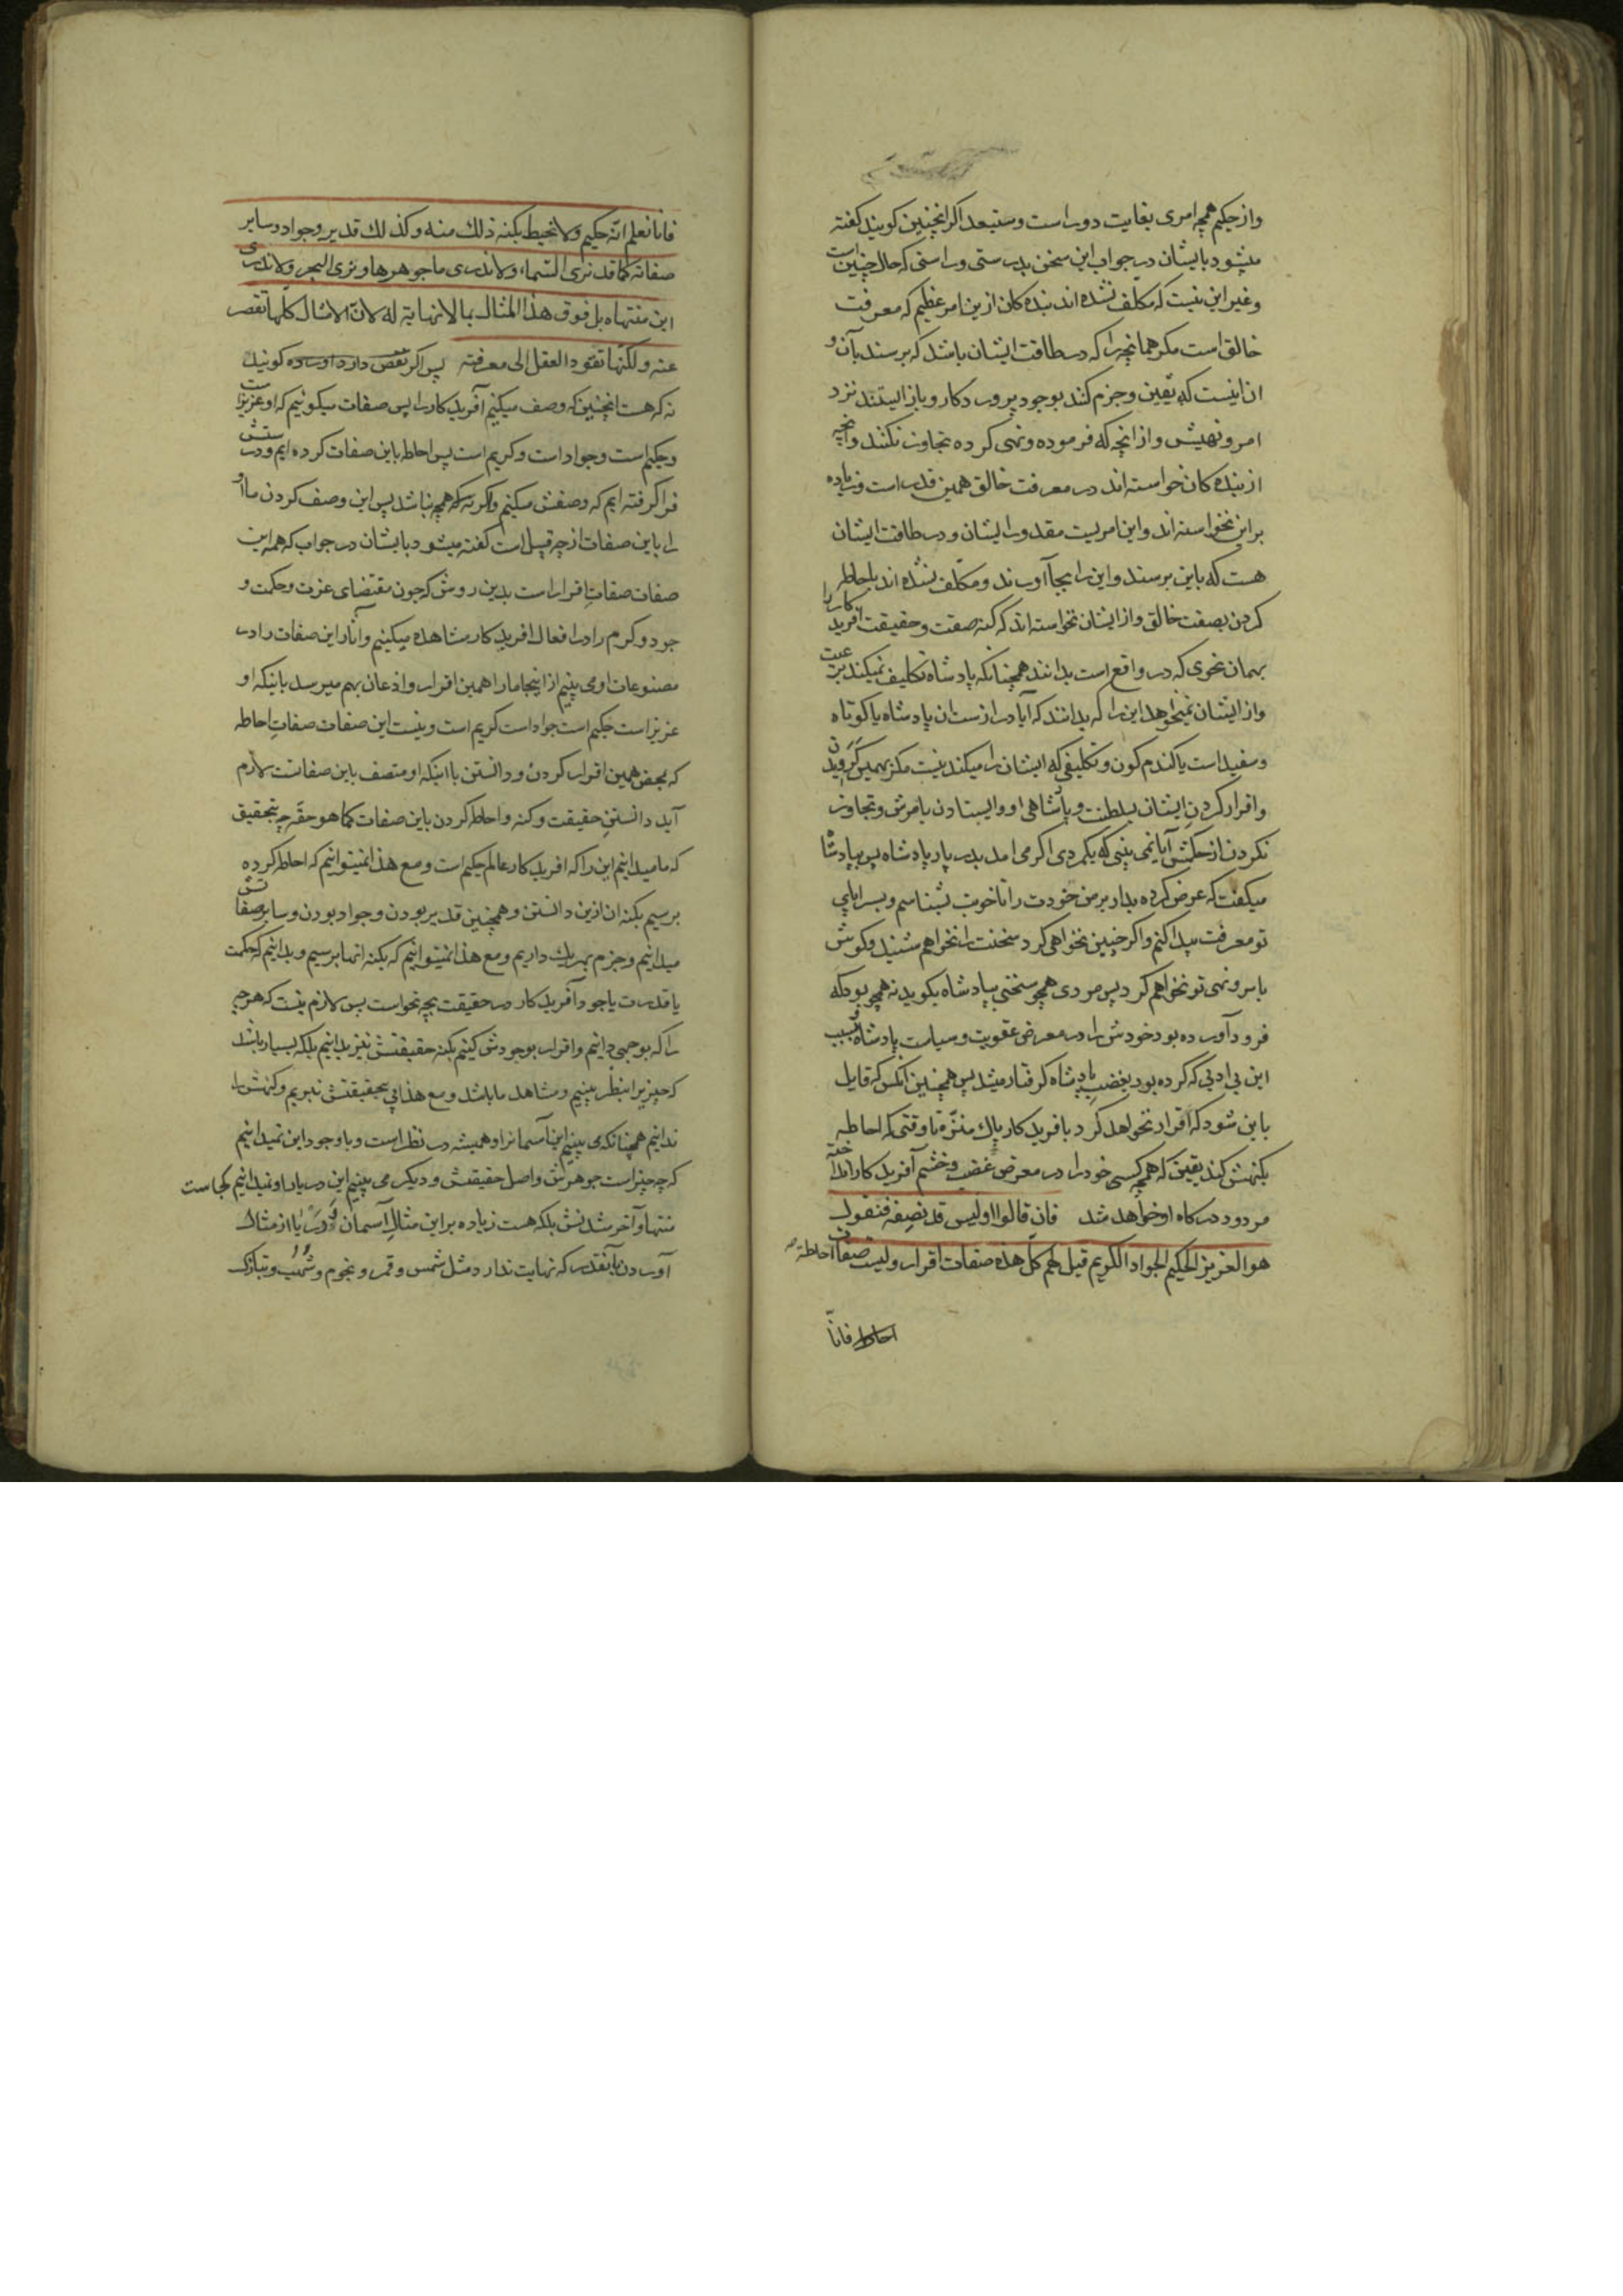 واز حکیم همچه امری بغایت دور است ومستبعد اکر انچنین کویند کفته
میشود بایشان در جواب این سخن بدرستی وراستی که حال چنین است
وغیر این نیست که مکلف نشده اند بنده کان ازین امر عظیم که معرفت
خالق است مکر همانچه را که در طاقت ایشان باشد که برسند بآن و
ان اینست که یقین وجزم کنند بوجود پرورد کار وباز ایستند نزد
امر ونهیش واز انچه که فرموده ونهی کرده تجاوز نکنند وانچه
از بنده کان خواسته اند در معرفت خالق همین قدر است وزیاده
بر این نخواسته اند واین امریست مقدور ایشان ودر طاقت ایشان
هست که باین برسند واین را بجا آورند ومکلف نشده اند باحاطه
کردن بصفت خالق واز ایشان نخواسته اند که کنه صفت وحقیقت آفریدکار را
بهمان نحوی که در واقع است بدانند همچنانکه پادشاه تکلیف نمیکند برعیت
واز ایشان نمیخواهد این را که بدانند که آیا دراز است ان پادشاه یا کوتاه
وسفید است یا کندم کون وتکلیفی که ایشان را میکند نیست مکر بهمین کرویدن
واقرار کردن ایشان بسلطنت وپادشاهی او وایستادن بامرش وتجاوز
نکردن از حکمش آیا نمی بینی که یکمردی اکر می امد بدربار پادشاه پس بپادشا
میکفت که عرض کرده بدار بر من خودت را تا خوب بشناسم وبسراپای
تو معرفت پیدا کنم واکر چنین نخواهی کرد سخنت را نخواهم شنید وکوش
بامر ونهی تو نخواهم کرد پس مردی همچو سخنی بپادشاه بکوید نه همچو بود که
فرود آورده بود خودش را در معرض عقوبت وسیاست پادشاه وبسبب
این بی ادبی که کرده بود بغضب پادشاه کرفتار میشد پس همچنین انکس که قایل
باین شود که اقرار نخواهد کرد بافرید کار پاک منزّه تا وقتی که احاطه
بکنهش کند یقین که همچه کسی خود را در معرض غضب وخشم آفرید کار انداخته
مردود درکاه او خواهد شد فان قالوا اولیس قد نصفه فنقول
هو العزیز الحکیم الجواد الکریم قیل لهم کلّ هذه صفات اقرار ولیست صفات احاطة
احاطة فانّا
فانا نعلم انّه حکیم ولا نحیط بکنه ذلك منه وکذلك قدیر وجواد وسایر
صفاته کما قد نری السّماء ولا ندری ما جوهرها ونری البحر ولا ندری
این منتهاه بل فوق هذا المثال بما لا نهایة له لانّ الامثال کلها تقصر
عنه ولکنّها تقود العقل الی معرفته پس اکر کویند
نه که هست انچنین که وصف میکنیم آفرید کار را پس صفات میکوئیم که او عزیز است
وحکیم است وجواد است وکریم است پس احاطه باین صفات کرده ایم ودرستش
فرا کرفته ایم که وصفش میکنیم واکر نه که همچه نباشد پس این وصف کردن ما او
را باین صفات از چه قبیل است کفته میشود بایشان در جواب که همه این
صفات صفات اقرار است بدین روش که چون مقتضای عزت وحکمت و
جود وکرم را در افعال افرید کار مشاهده میکنیم وآثار این صفات را در
مصنوعات او می بینیم از اینجا ما را همین اقرار واذعان بهم میرسد باینکه او
عزیز است حکیم است جواد است کریم است ونیست این صفات صفات احاطه
که بمحض همین اقرار کردن ودانستن بااینکه او متصف باین صفاتست لازم
آید دانستن حقیقت وکنه واحاطه کردن باین صفات کما هو حقّه چه بتحقیق
که ما میدانیم این را که افرید کار عالم حکیم است ومع هذا نمیتوانیم که احاطه کرده
برسیم بکنه ان ازین دانستن وهمچنین قدیر بودن وجواد بودن وسایر صفاتش
میدانیم وجزم بهر یک داریم ومع هذا نمیتوانیم که بکنه انها برسیم وبدانیم که حکمت
یا قدرت یا جود آفرید کار در حقیقت بچه نحو است پس لازم نیست که هر چه
را که بوجهی دانیم واقرار بوجودش کنیم بکنه حقیقتش نیز بدانیم بلکه بسیار باشد
که چیزیرا بنظر ببینیم ومشاهد ما باشد ومع هذا پی بحقیقتش نبریم وکنهش را
ندانیم همچنانکه می بینیم این آسمانرا وهمیشه در نظر است وباوجود این نمیدانیم
که چه چیز است جوهرش واصل حقیقتش ودیکر می بینیم این دریا را ونمیدانیم کجاست
منتها وآخر شدنش بلکه هست زیاده بر این مثال آسمان ودریا از مثال
آوردن بآنقدر که نهایت ندارد مثل شمس وقمر ونجوم وشهب